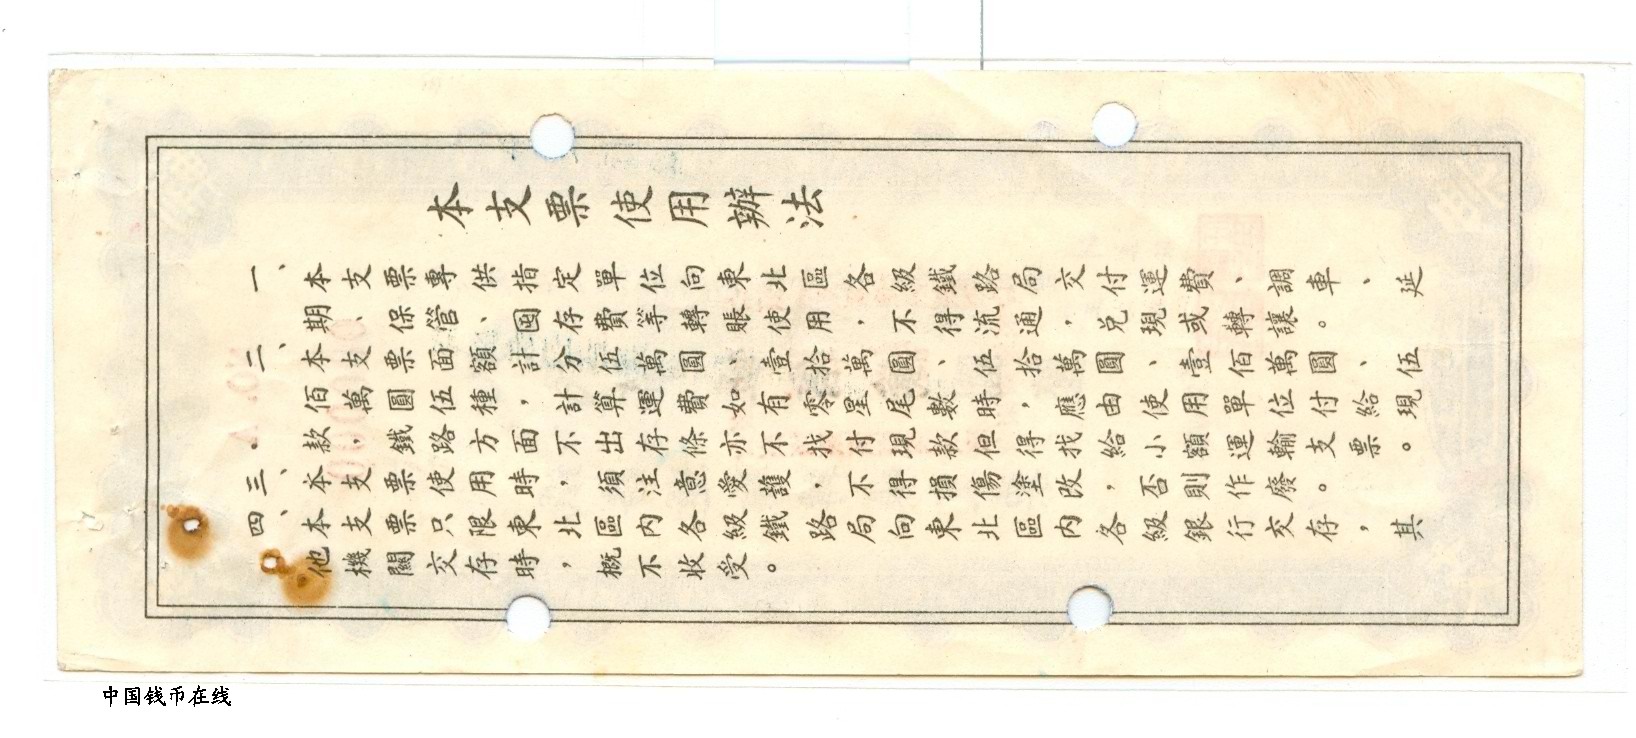 本支票使用辦法
一、本支票專供指定單位向東北區各級鐵路局交付運費、調車、延
期、保管、囤存費等轉賬使用，不得流通，兌現或轉讓。
二、本支票面額，計分伍萬圓、壹拾萬圓、伍拾萬圓、壹佰萬圓、伍
佰萬圓伍種，計算運費如有零星尾數時，應由使用單位付給現
款，鐵路方面不出存條亦不找付現款但得找給小額運輸支票。
三、本支票使用時，須注意愛護，不得損傷塗改，否則作廢。
四、本支票只限東北區內各級鐵路局向東北區內各級銀行交存，其
他機關交存時，概不收受。
中国钱币在线